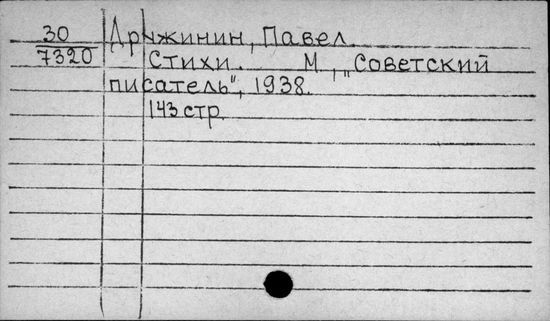 30 Дружинин, Павел
7320 Стихи. М., „Советский
писатель", 1938.
143 стр.